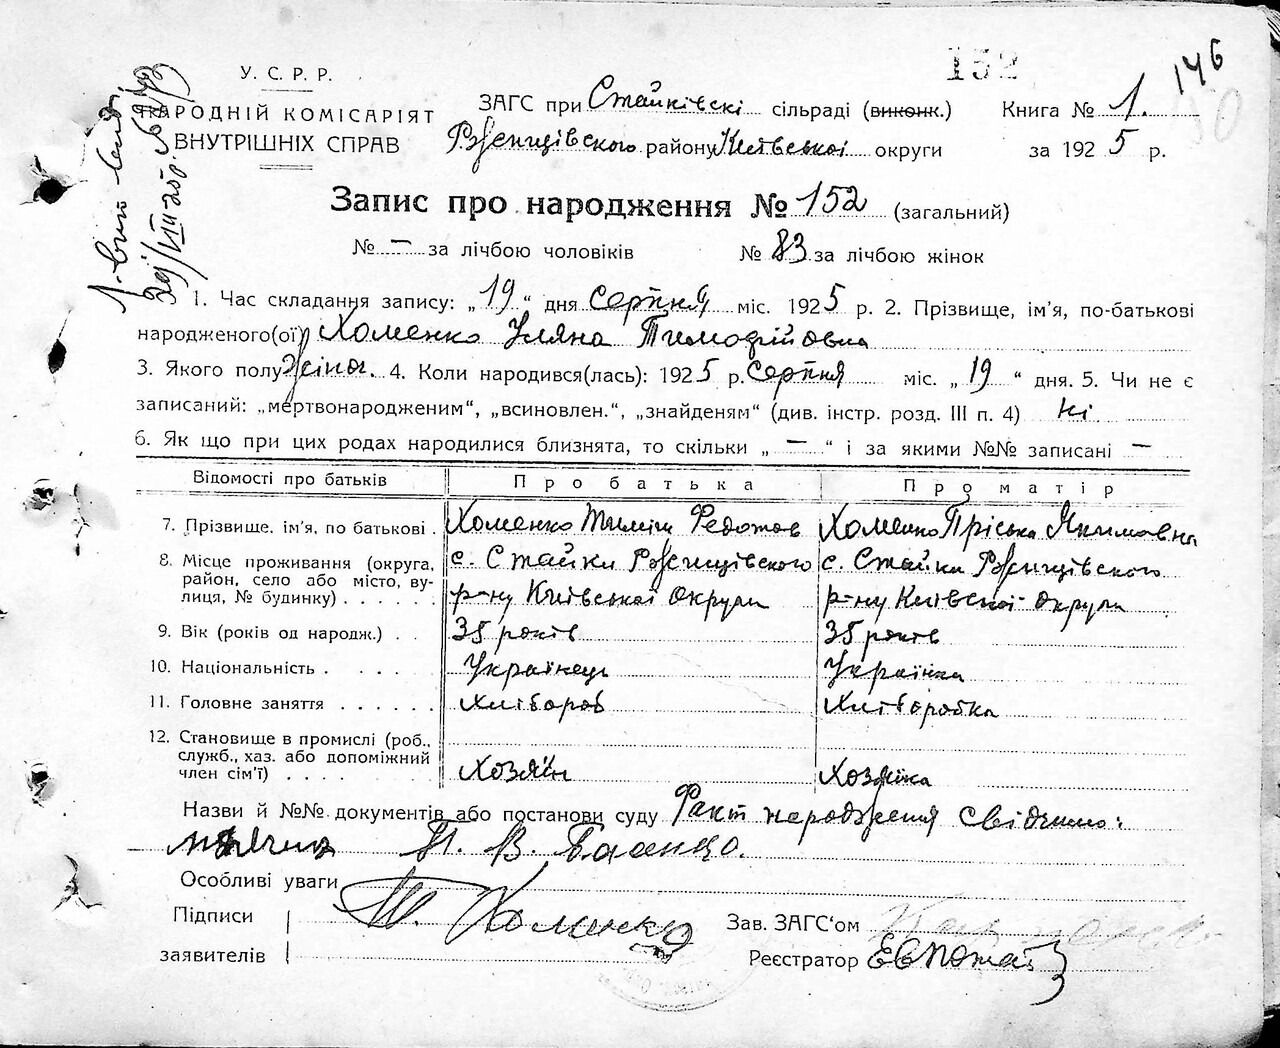 152
146
У. С. Р. Р.
НАРОДНІЙ КОМІСАРІЯТ
ВНУТРІШНІХ СПРАВ
ЗАГС при Стайківскі сільраді (виконк.)
Ржищівского району Київської округи
Книга № 1.
за 1925 р.
Запис про народження № 152 (загальний)
№ — за лічбою чоловіків № 83 за лічбою жінок
1. Час складання запису: „19“ дня серпня міс. 1925 р. 2. Прізвище, ім'я, по-батькові
народженого(ої) Хоменко Уляна Тимофійовна
3. Якого полу жіноч. 4. Коли народився(лась): 1925 р. серпня міс. „19“ дня. 5. Чи не є
записаний: „мертвонародженим“, „всиновлен.“, „знайденям“ (див. інстр. розд. III п. 4) ні
6. Як що при цих родах народилися близнята, то скільки „—“ і за якими №№ записані —
Відомості про батьків Про батька Про матір
7. Прізвище. ім'я, по батькові. Хоменко Тиміш Федотов Хоменко Пріська Якимовна
8. Місце проживання (округа, район, село або місто, вулиця, № будинку) с. Стайки Ржищівского р-ну Київської округи с. Стайки Ржищівского р-ну Київської округи
9. Вік (років од народж.) 35 років 35 років
10. Національність Українець Українка
11. Головне заняття Хлібороб Хліборобка
12. Становище в промислі (роб., служб., хаз. або допоміжний член сім'ї) Хозяїн Хозяїка
Назви й №№ документів або постанови суду Факт народження свідчило:
П. В.
Особливі уваги
Підписи Т. Хоменко
заявителів
Зав. ЗАГС'ом
Реєстратор